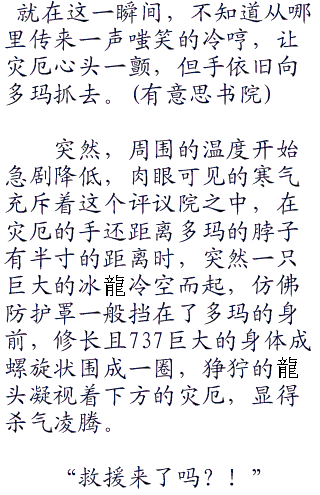 就在这一瞬间，不知道从哪
里传来一声嗤笑的冷哼，让
灾厄心头一颤，但手依旧向
多玛抓去。(有意思书院)
突然，周围的温度开始
急剧降低，肉眼可见的寒气
充斥着这个评议院之中，在
灾厄的手还距离多玛的脖子
有半寸的距离时，突然一只
巨大的冰龍冷空而起，仿佛
防护罩一般挡在了多玛的身
前，修长且737巨大的身体成
螺旋状围成一圈，狰狞的龍
头凝视着下方的灾厄，显得
杀气凌腾。
“救援来了吗？！”